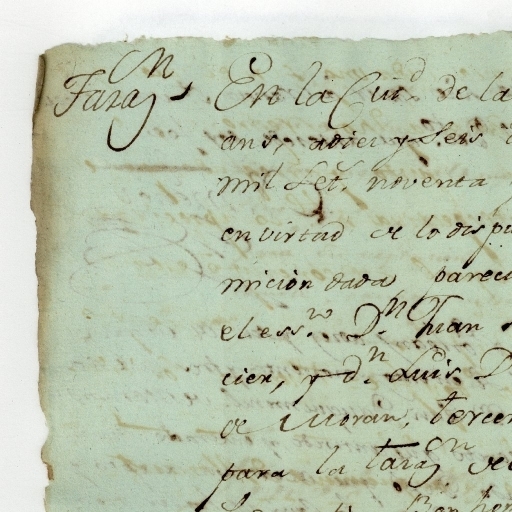 Tasaⁿ
En la Ciuᵈ de la
ans, a diez y Seis
mil Setˢ noventa
en virtad de lo dispu
mición dada, parecie
el essⁿᵒ Dⁿ Juan
cier, y dⁿ Luis D
de Morán, tercer
para la tasaⁿ de